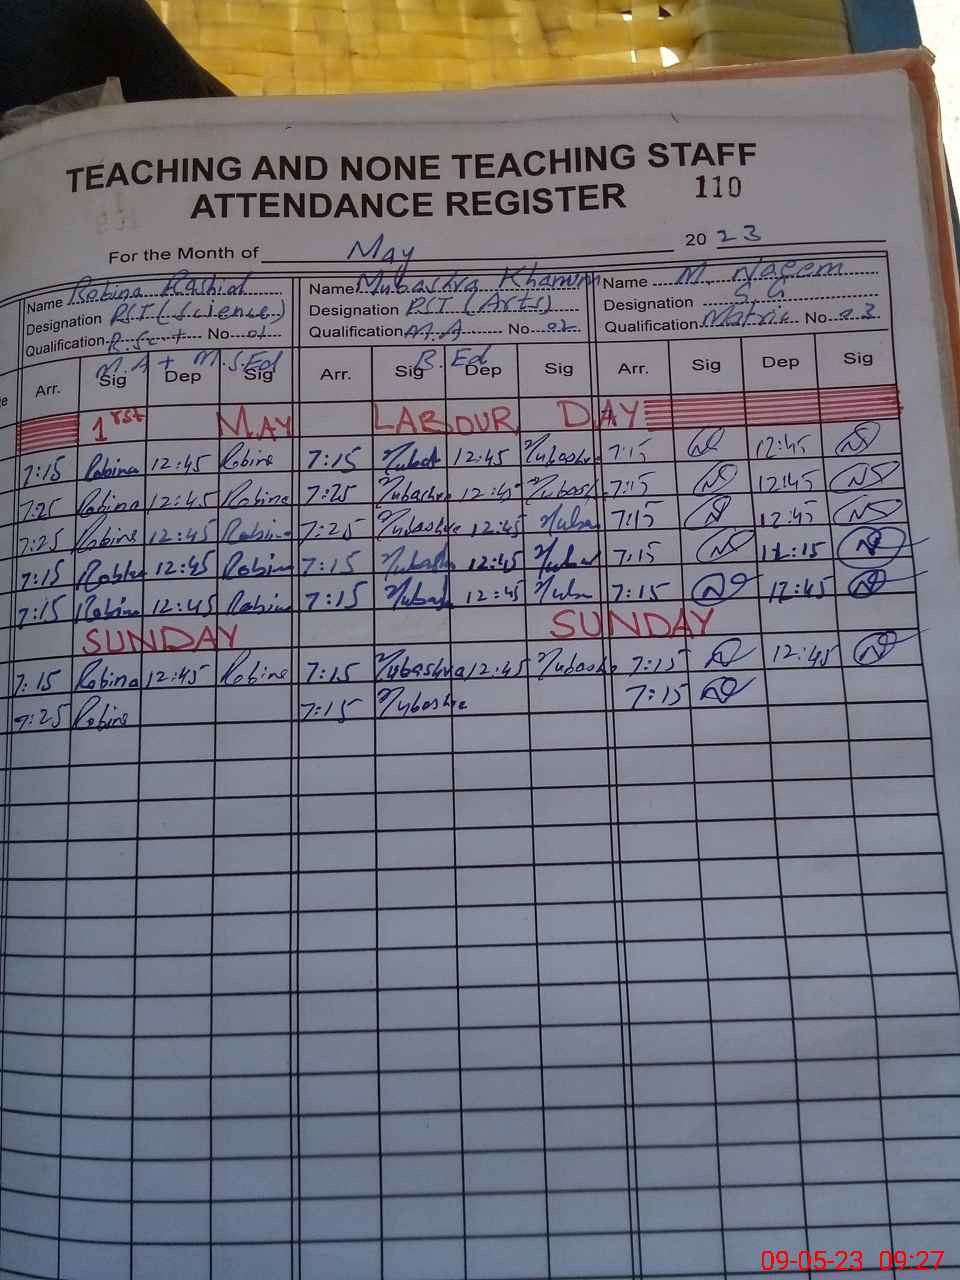 TEACHING AND NONE TEACHING STAFF
ATTENDANCE REGISTER 110
For the Month of May 20 23
Name Robina Rashid Name Mubashra Khanum Name M. Naeem
Designation PST (Science) Designation PST (Arts) Designation S.G
Qualification B.Sc + No 01 Qualification M.A No 02 Qualification Matric No 03
M.A + M.S.Ed B.Ed
Arr. Sig Dep Sig Arr. Sig Dep Sig Arr. Sig Dep Sig
1rst MAY LABOUR DAY
7:15 Robina 12:45 Robina 7:15 Mubash 12:45 Mubashra 7:15 12:45
7:25 Robina 12:45 Robina 7:25 Mubashra 12:45 Mubash 7:15 12:45
7:25 Robina 12:45 Robina 7:25 Mubashra 12:45 Muba 7:15 12:45
7:15 Robina 12:45 Robina 7:15 Mubash 12:45 Mubas 7:15 11:15
7:15 Robina 12:45 Robina 7:15 Mubash 12:45 Muba 7:15 12:45
SUNDAY SUNDAY
7:15 Robina 12:45 Robina 7:15 Mubashra 12:45 Mubashr 7:15 12:45
7:25 Robina 7:15 Mubashra 7:15
09-05-23 09:27